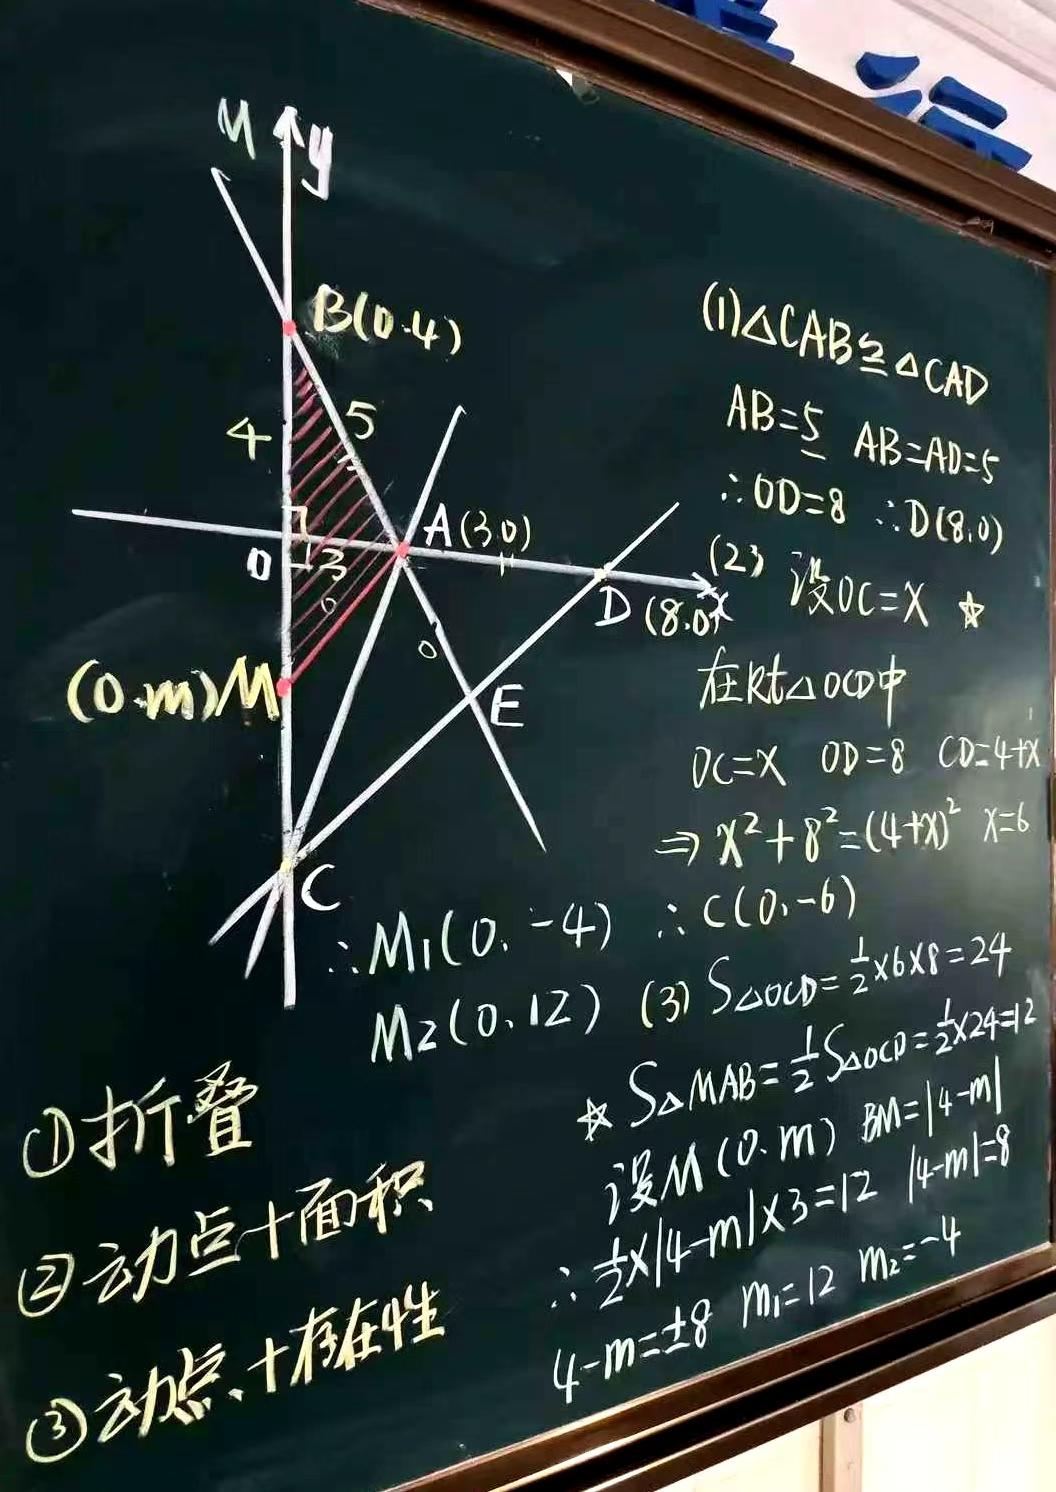 M
y
B(0.4)
4
5
O
3
A(3.0)
D(8.0)
x
(0.m)M
E
C
(1)△CAB≌△CAD
AB=5 AB=AD=5
∴OD=8 ∴D(8.0)
(2) 设OC=X ☆
在Rt△OCD中
OC=X OD=8 CD=4+X
⇒X²+8²=(4+X)² X=6
∴C(0.-6)
(3) S△OCD=1/2×6×8=24
☆ S△MAB=1/2S△OCD=1/2×24=12
设M(0.m) BM=|4-m|
∴1/2×|4-m|×3=12 |4-m|=8
4-m=±8 m₁=12 m₂=-4
∴M1(0.-4)
M2(0.12)
①折叠
②动点+面积
③动点、+存在性